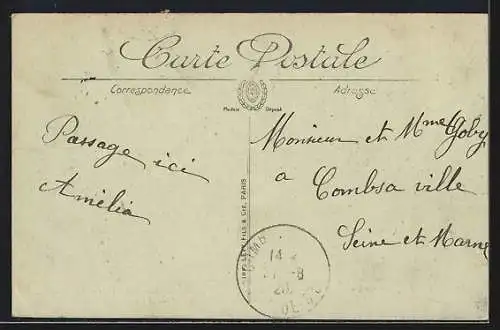 Carte Postale
Correspondance
Adresse
Modèle Déposé
Passage ici
Amélia
Monsieur et Mme Goby
a
Combsa ville
Seine et Marne
FILS & Cie, PARIS
14